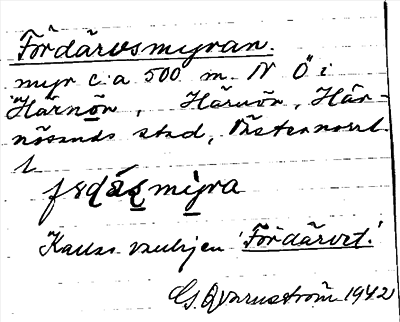 Fördärvsmyran.
myr c:a 500 m N Ö i
Härnön, Härnön, Här-
nösands stad, Västernorrl.
l
mỳra
Kallas vanligen 'Fördärvet'.
G. Qvarnström 1942